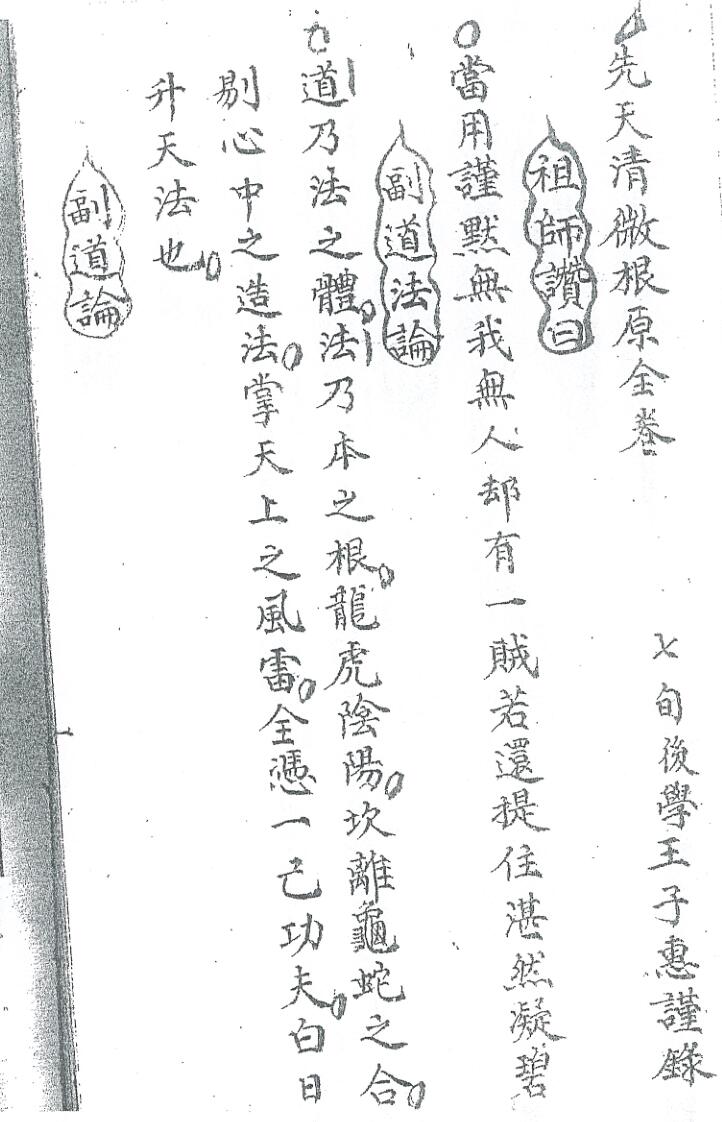 先天清微根原全卷
七旬後學王子惠謹錄
祖師讚曰
當用謹默無我無人却有一賊若還提住湛然凝碧
副道法論
道乃法之體法乃本之根龍虎陰陽坎離龜蛇之合
剔心中之造法掌天上之風雷全憑一己功夫白日
升天法也
副道論